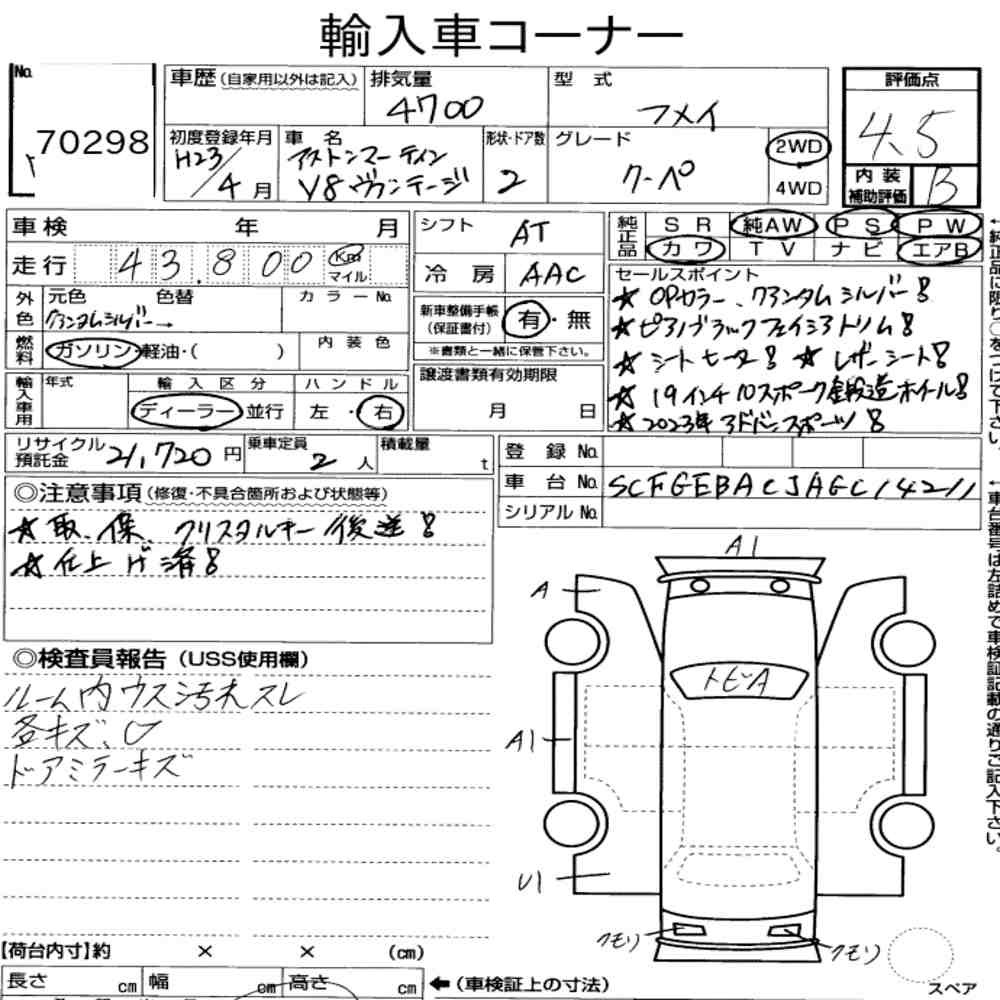 輸入車コーナー
No. 70298
車歴(自家用以外は記入) 排気量 4700 型式 フメイ
評価点 4.5
初度登録年月 H23/4月 車名 アストンマーティン V8 ヴァンテージ 形状・ドア数 2 グレード クーペ 2WD 4WD
内装補助評価 B
車検 年 月
走行 43,800 Km マイル
外色 元色 色替 カラーNo.
クァンタムシルバー→
燃料 ガソリン・軽油・( ) 内装色
輸入車用 年式 輸入区分 ハンドル
ディーラー・並行 左・右
シフト AT
冷房 AAC
新車整備手帳(保証書付) 有・無
※書類と一緒に保管下さい。
譲渡書類有効期限
月 日
純正品 SR 純AW PS PW
カワ TV ナビ エアB
セールスポイント
☆ OPカラー、クァンタムシルバー!
☆ピアノブラックフェイシアトリム!
☆ シートヒーター! ☆ レザーシート!
☆ 19インチ10スポーク鍛造ホイール!
リサイクル預託金 21,720円 乗車定員 2人 積載量 t
登録No.
車台No. SCFGEBACJAGC14211
シリアルNo.
◎注意事項(修復・不具合箇所および状態等)
☆ 取、保、クリスタルキー後送!
☆ 仕上げ済!
◎検査員報告(USS使用欄)
ルーム内ウス汚れスレ
各キズ、
ドアミラーキズ
A1
A
トビA
A1
U1
クモリ クモリ
スペア
【荷台内寸】約 × × (cm)
長さ cm 幅 cm 高さ cm
←(車検証上の寸法)
←純正品に限り○をつけて下さい。
←車台番号は左詰めで車検証記載の通りご記入下さい。